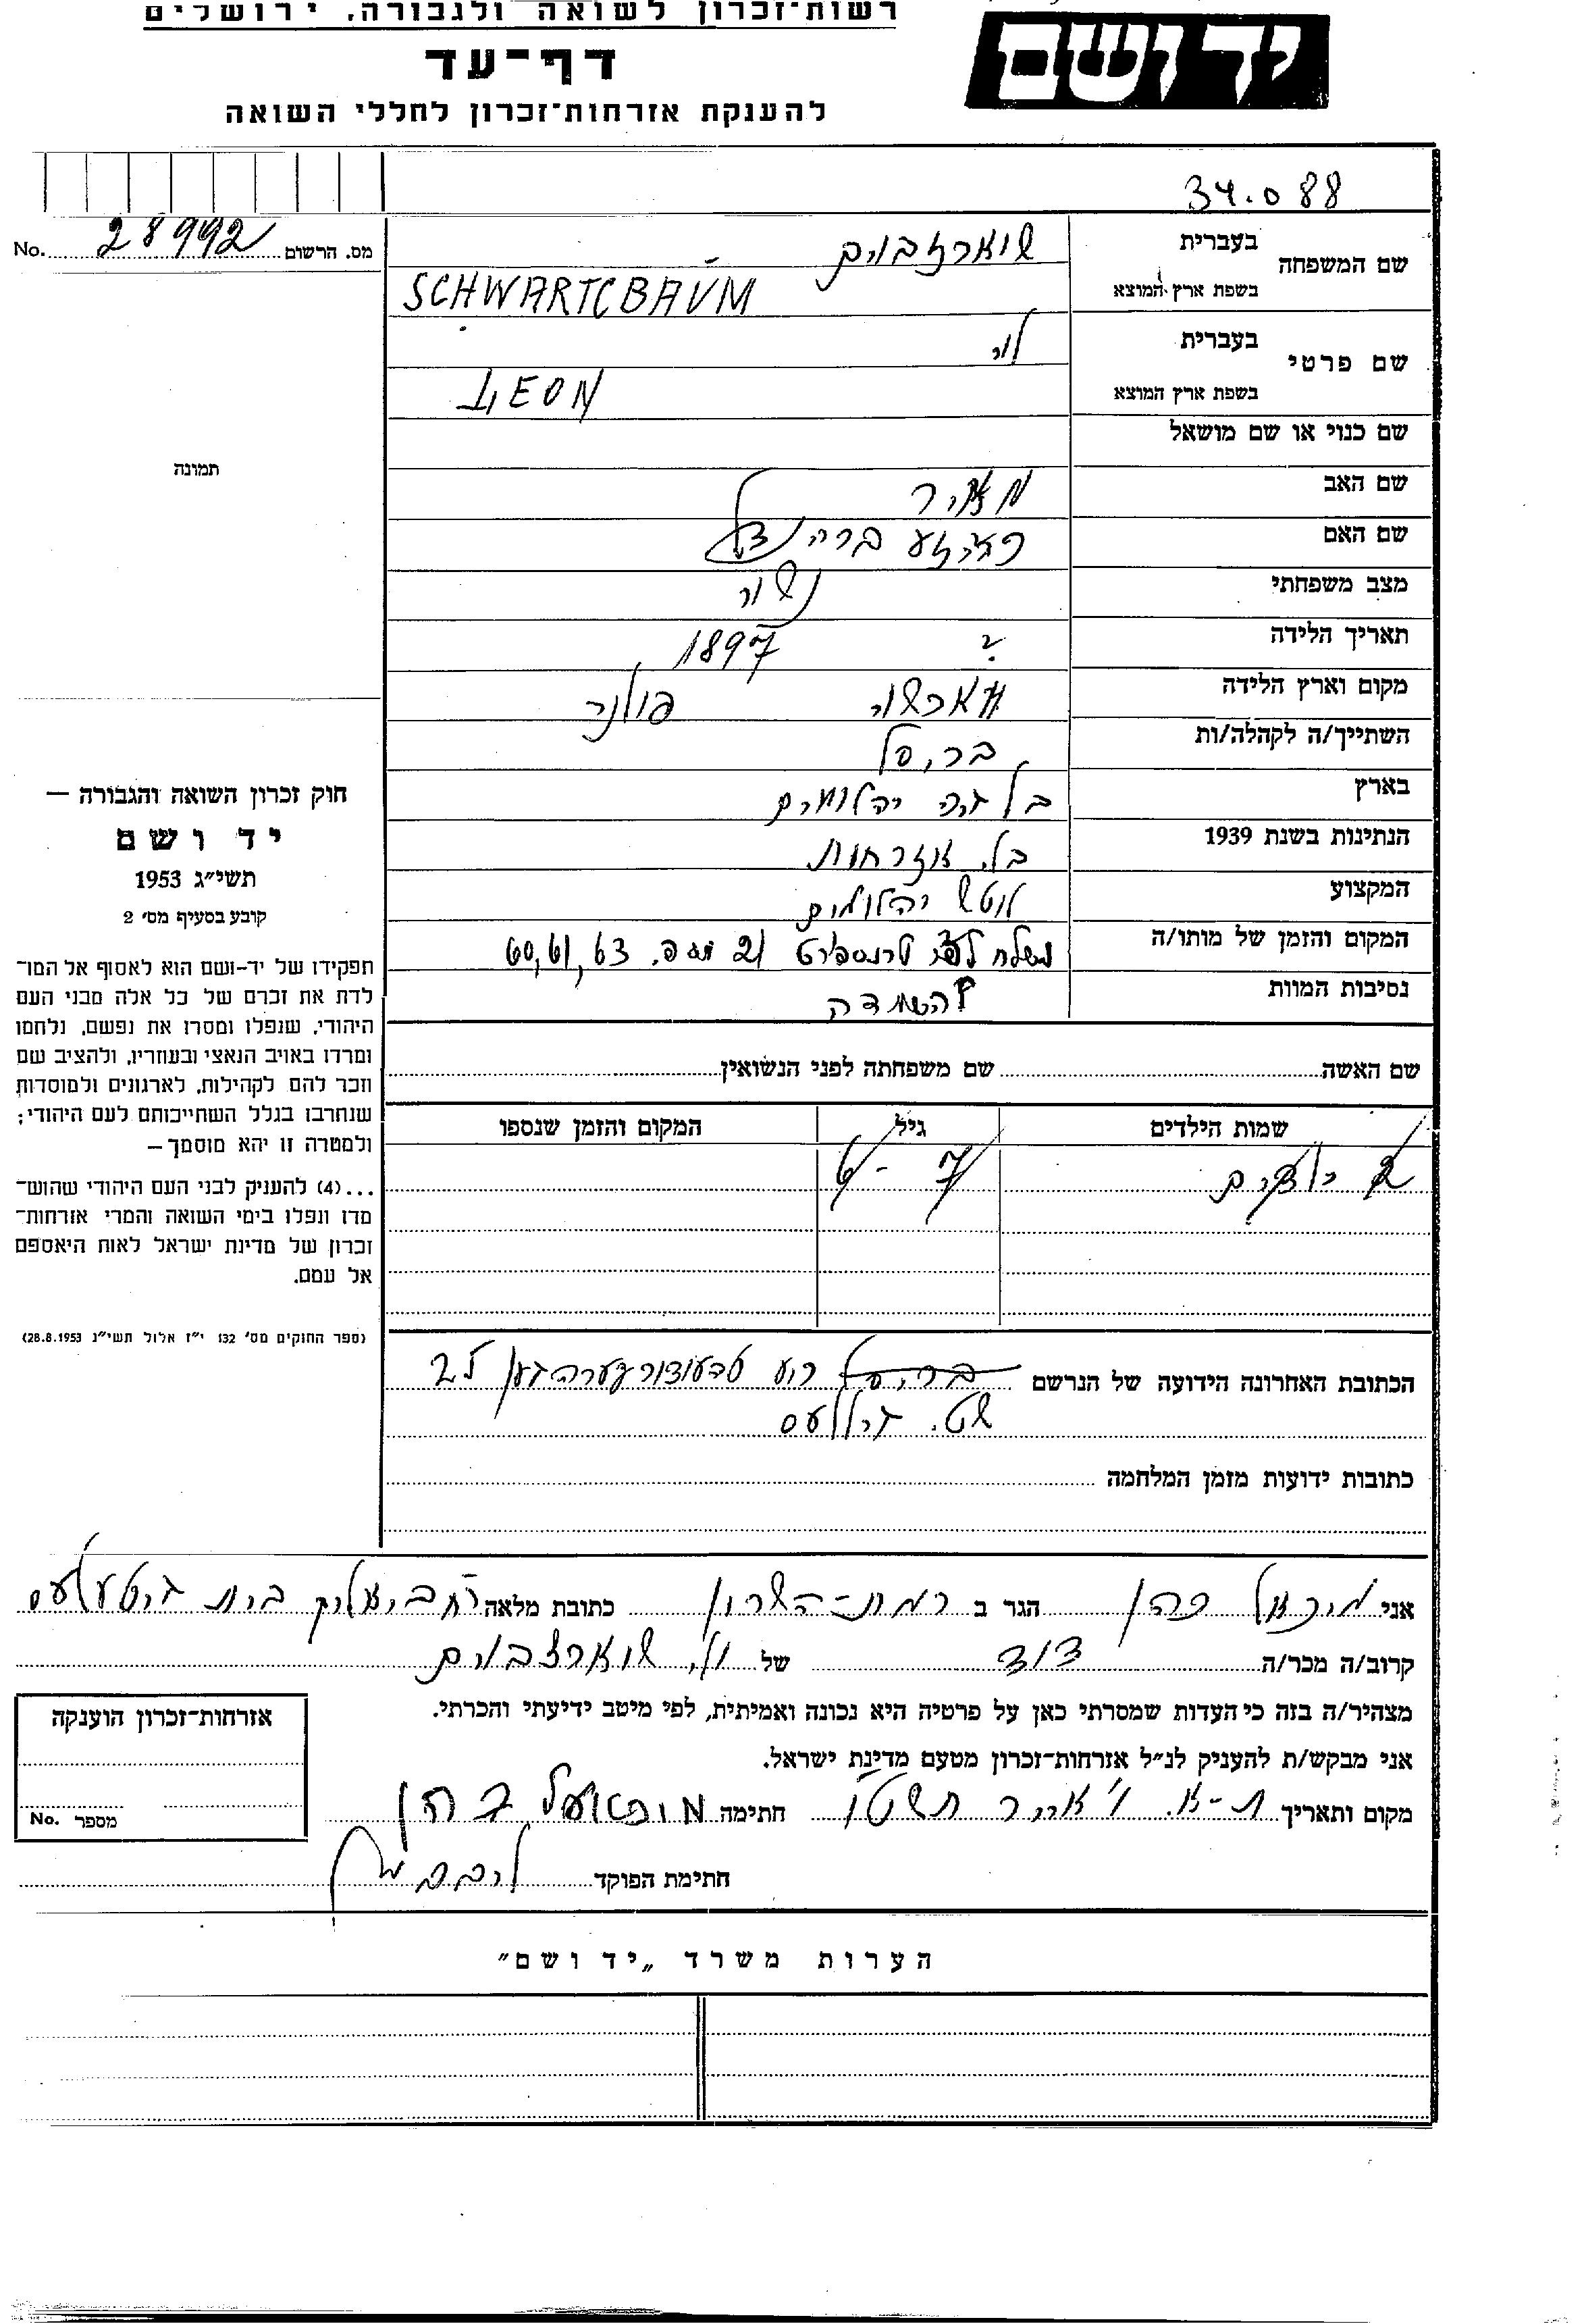 רשות-זכרון לשואה ולגבורה, ירושלים
יד ושם
דף-עד
להענקת אזרחות-זכרון לחללי השואה
34.088
מס. הרשום 28992 No.
שם המשפחה
בעברית שווארצבוים
בשפת ארץ המוצא SCHWARTCBAUM
שם פרטי
בעברית
בשפת ארץ המוצא LEON
שם כנוי או שם מושאל
תמונה
שם האב מאיר
שם האם
מצב משפחתי נשוי
תאריך הלידה ? 1897
מקום וארץ הלידה ווארשה פולניה
השתייך/ה לקהלה/ות בריסל
בארץ
הנתינות בשנת 1939 בלי אזרחות
המקצוע לוטש יהלומים
המקום והזמן של מותו/ה
נסיבות המוות השמדה
שם האשה שם משפחתה לפני הנשואין
שמות הילדים גיל המקום והזמן שנספו
2 ילדים 7 - 6
הכתובת האחרונה הידועה של הנרשם בריסל רוע 25
שט. זיללעס
כתובות ידועות מזמן המלחמה
חוק זכרון השואה והגבורה —
יד ושם
תשי״ג 1953
קובע בסעיף מס׳ 2
תפקידו של יד-ושם הוא לאסוף אל המו־
לדת את זכרם של כל אלה מבני העם
היהודי, שנפלו ומסרו את נפשם, נלחמו
ומרדו באויב הנאצי ובעוזריו, ולהציב שם
וזכר להם לקהילות, לארגונים ולמוסדות
שנחרבו בגלל השתייכותם לעם היהודי;
ולמטרה זו יהא מוסמך—
...(4) להעניק לבני העם היהודי שהוש־
מדו ונפלו בימי השואה והמרי אזרחות־
זכרון של מדינת ישראל לאות היאספם
אל עמם.
(ספר החוקים מס׳ 132 י״ז אלול תשי״ג 28.8.1953)
אני מיכאל כהן הגר ב רמת-השרון כתובת מלאה רח ביאליק בית
קרוב/ה מכר/ה דוד של שווארצבוים
מצהיר/ה בזה כי העדות שמסרתי כאן על פרטיה היא נכונה ואמיתית, לפי מיטב ידיעתי והכרתי.
אני מבקש/ת להעניק לנ״ל אזרחות-זכרון מטעם מדינת ישראל.
מקום ותאריך ת-א. תשטו חתימה מיכאל כהן
חתימת הפוקד
אזרחות-זכרון הוענקה
מספר No.
הערות משרד „יד ושם״